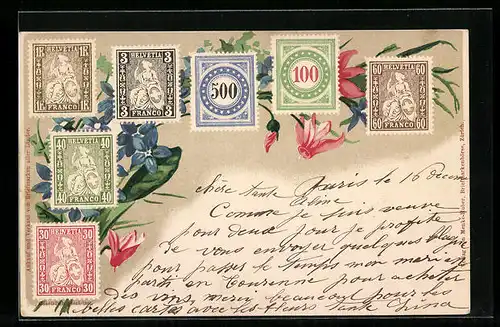 HELVETIA
1F. 1F.
FRANCO
HELVETIA
3 3
3 FRANCO 3
500
100
HELVETIA
60 60
60 FRANCO 60
HELVETIA
40 40
40 FRANCO 40
HELVETIA
30 30
30 FRANCO 30
Paris le 16 decem
chère tante
Comme je suis veuve
pour deux jour je profite
de vous envoyer quelques
pour passer le temps mon mari
parti en Touraine pour acheter
des vins, merci beaucoup pour les
belles cartes avec les fleurs tante